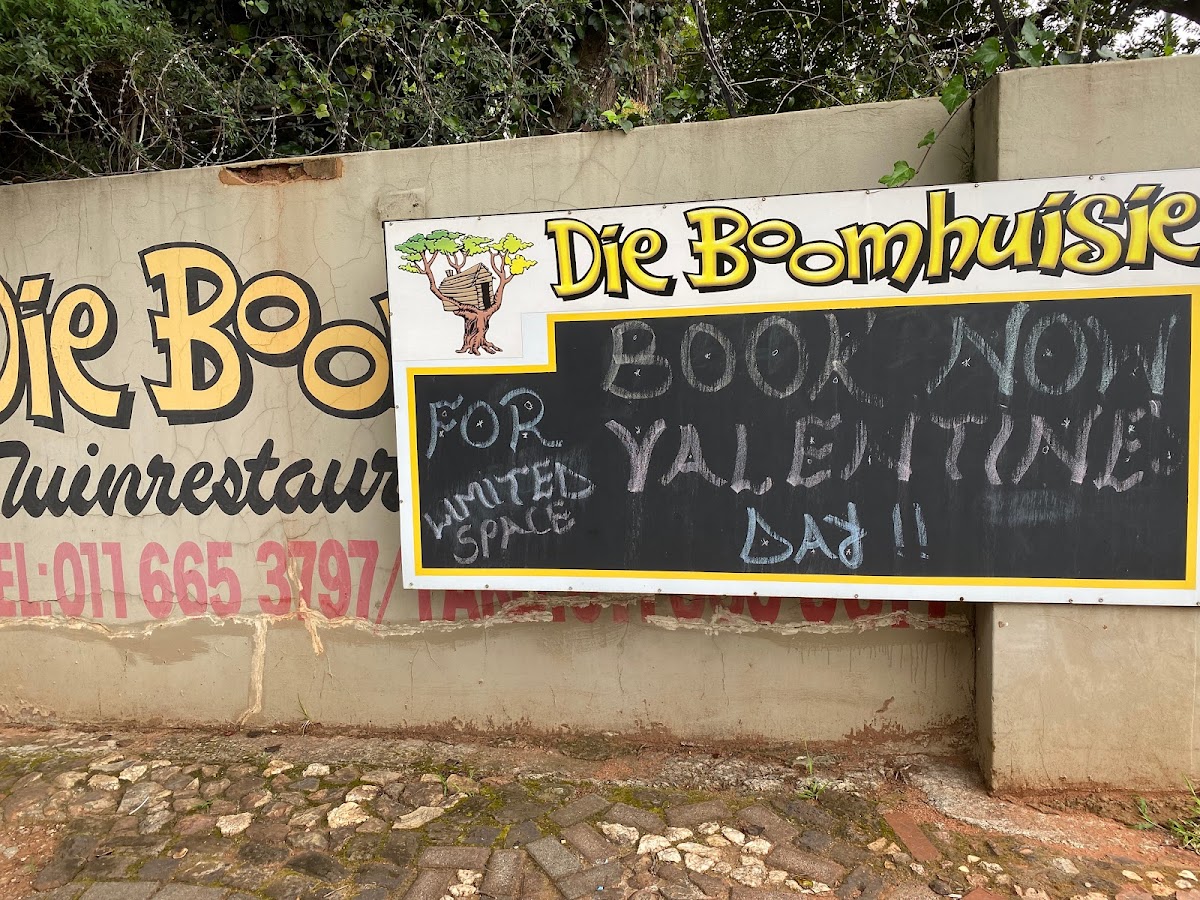 Die Boo
Tuinrestaur
TEL: 011 665 3797/
Die Boomhuisie
BOOK NOW
FOR VALENTINES
LIMITED SPACE
DAY !!